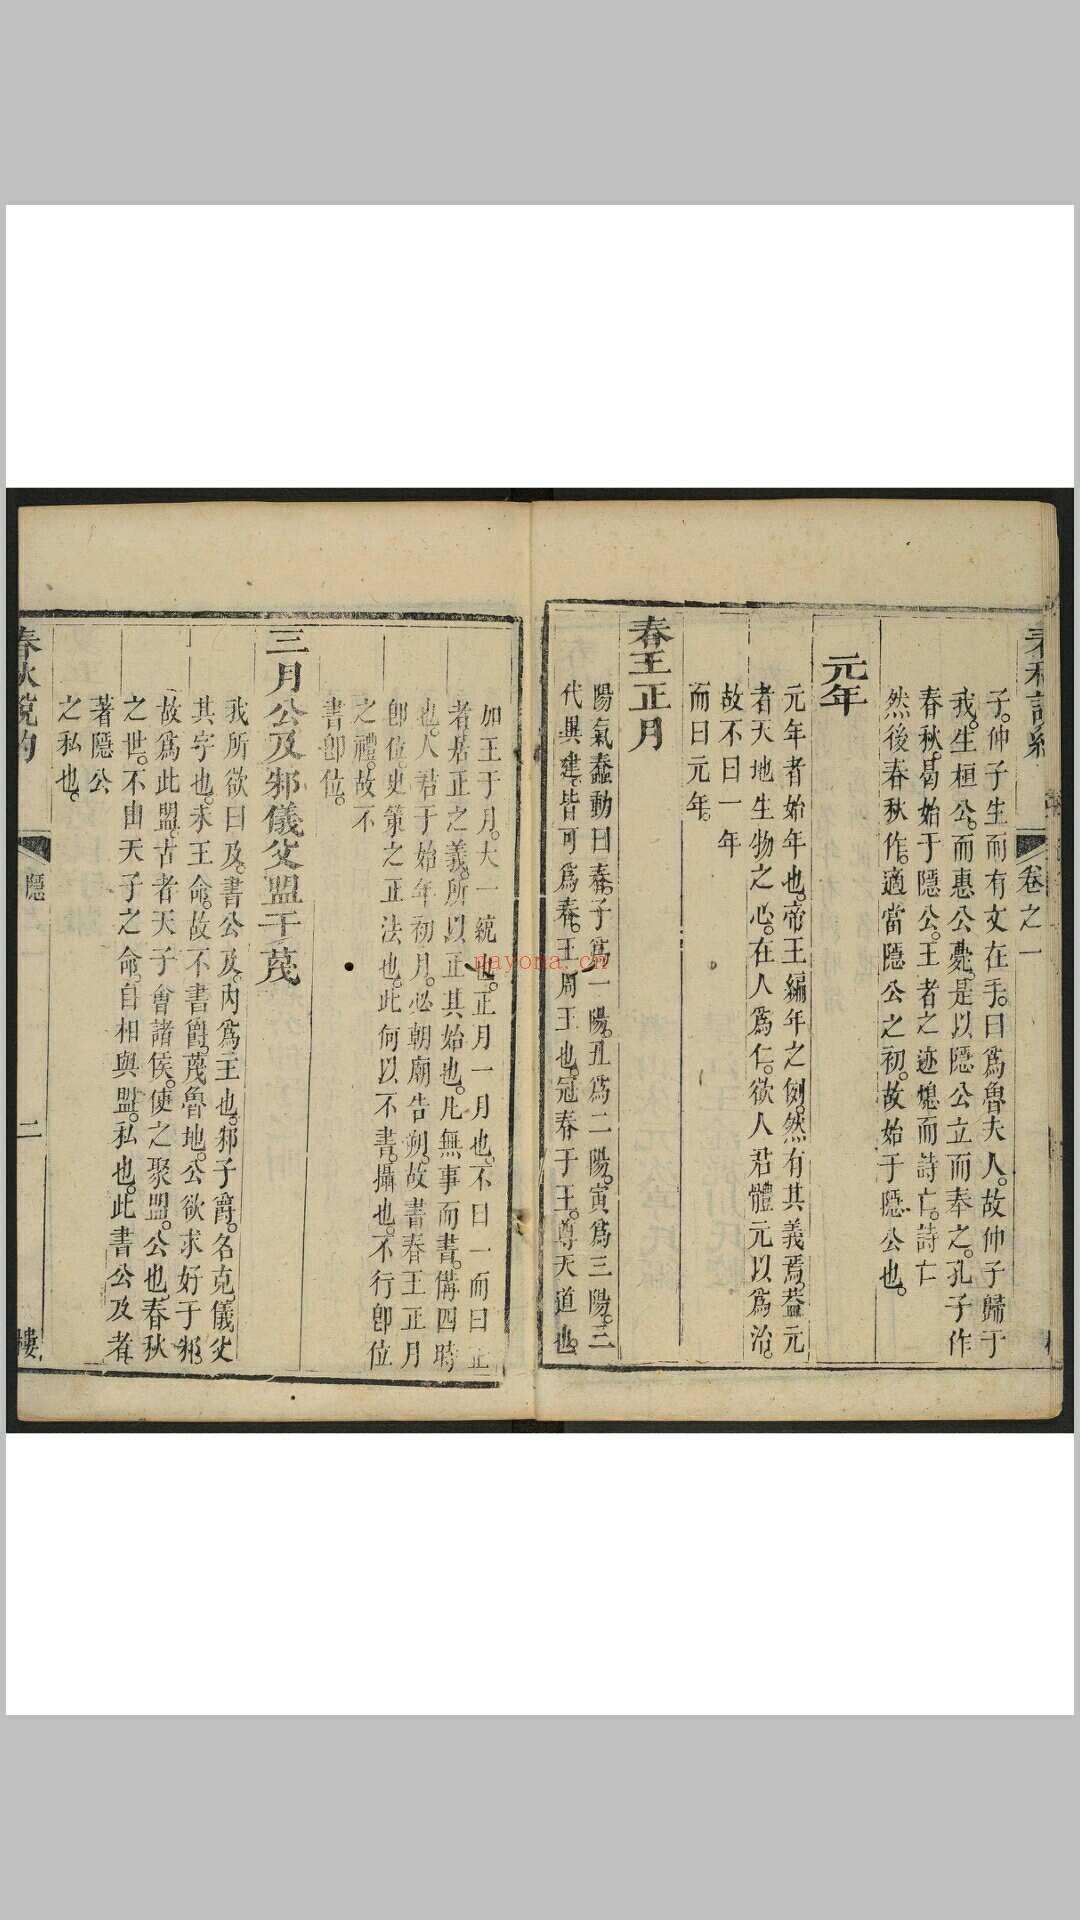 卷之一
子。仲子生而有文在手。曰爲魯夫人。故仲子歸于
我。生桓公。而惠公薨。是以隱公立而奉之。孔子作
春秋。曷始于隱公。王者之迹熄而詩亡。詩亡
然後春秋作。適當隱公之初。故始于隱公也。
元年
元年者始年也。帝王編年之例。然有其義焉。蓋元
者天地生物之心。在人爲仁。欲人君體元以爲治。
故不曰一年
而曰元年。
春王正月
陽氣蠢動曰春。子爲一陽。丑爲二陽。寅爲三陽。三
代異建。皆可爲春。王周王也。冠春于王。尊天道也。
加王于月。大一統也。正月一月也。不曰一而曰正
者。居正之義。所以正其始也。凡無事而書。備四時
也。人君于始年初月。必朝廟告朔。故書春王正月
卽位。史策之正法也。此何以不書。攝也。不行卽位
之禮。故不
書卽位。
三月公及邾儀父盟于蔑
我所欲曰及。書公及。內爲主也。邾子爵。名克。儀父
其字也。未王命。故不書爵。蔑魯地。公欲求好于邾。
故爲此盟。古者天子會諸侯。使之聚盟。公也。春秋
之世。不由天子之命。自相與盟。私也。此書公及者
著隱公
之私也。
春秋說約
隱
二
樓
nayona.cn